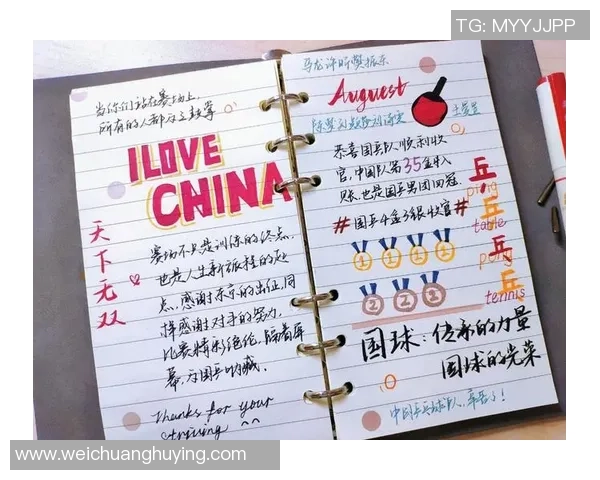 TG: MYYJJPP
当你们站在赛场上,
所有的人都为之鼓掌
I LOVE
CHINA
天下无双
赛场不只是训练的终点,
也是人生新旅程的起
点,感谢东京的出征,同
样感谢对手的努力,
比赛精彩绝伦,隔着屏
幕,为国乒呐喊。
Thanks for your
striving ^^
马龙许昕樊振东
Auguest
陈梦刘诗雯
王曼昱
恭喜国乒队顺利收
官,中国队第35金收
账,也是国乒男团四冠.
#国乒4金3银收官#
乒乓乒乓
ping
table
pong
tennis
1 1 1 1
2 2 2
国球:传承的力量
国球的光荣
中国乒乓球队,辛苦了!
www.weichuanghuying.com